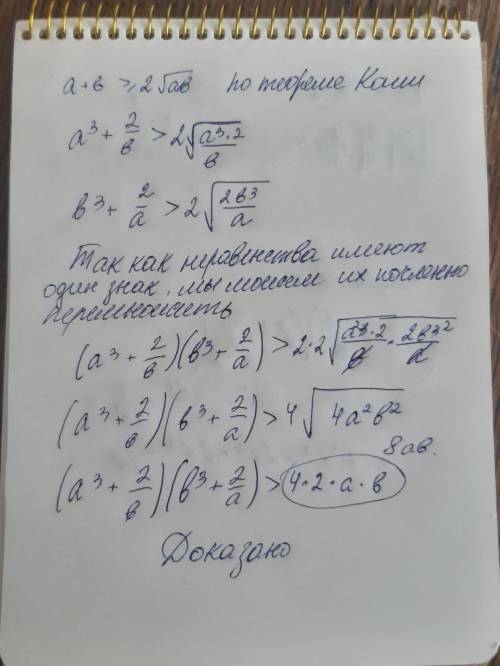 a+в ≥ 2√ав по теореме Коши
a³ + 2/в > 2√(a³·2/в)
в³ + 2/a > 2√(2в³/a)
Так как неравенства имеют
один знак, мы можем их почленно
перемножить
(a³ + 2/в)(в³ + 2/a) > 2·2√(a³·2/в · 2в³/a)
(a³ + 2/в)(в³ + 2/a) > 4√(4a²в²)
8ав.
(a³ + 2/в)(в³ + 2/a) > 4·2·a·в
Доказано